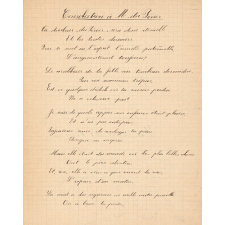 Consolation à M. du Périer
Ta douleur, du Périer, sera donc éternelle
Et les tristes discours
Que te met en l'esprit l'amitié paternelle
L'augmenteront toujours
Le malheur de ta fille au tombeau descendue
Par un commun trépas
Est-ce quelque dédale où ta raison perdue
Ne se retrouve pas
Je sais de quels appas son enfance était pleine
Et n'ai pas entrepris
Injurieux ami, de soulager ta peine
mépris
Mais elle était du monde où les plus belles choses
Ont le pire destin
Et rose, elle a vécu ce que vivent les roses
L'espace d'un matin
La mort a des rigueurs à nulle autre pareille
On a beau la prier